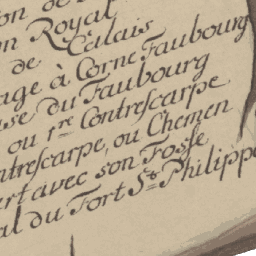 on de
on Royal
de Calais
age à Corne Faubourg
se du Faubourg
ou 1re Contrescarpe
ntrescarpe, ou Chemen
ert avec son Fosse
al du Fort St Philippe